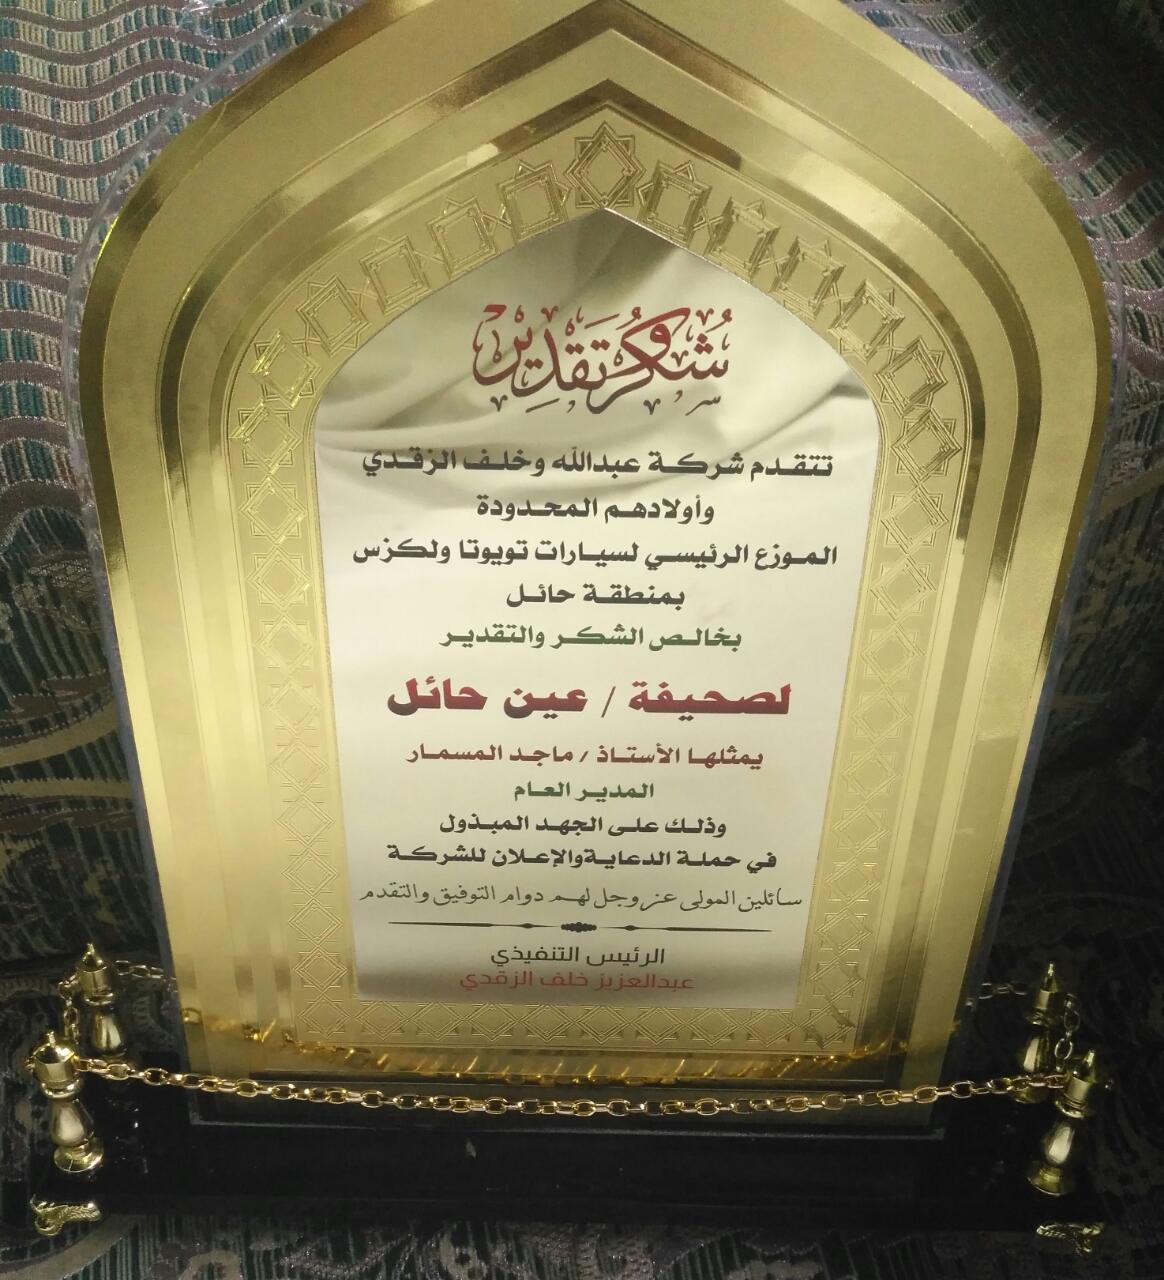 شكر وتقدير
تتقدم شركة عبدالله وخلف الزقدي
وأولادهم المحدودة
الموزع الرئيسي لسيارات تويوتا ولكزس
بمنطقة حائل
بخالص الشكر والتقدير
لصحيفة / عين حائل
يمثلها الأستاذ / ماجد المسمار
المدير العام
وذلك على الجهد المبذول
في حملة الدعايةوالإعلان للشركة
سائلين المولى عز وجل لهم دوام التوفيق والتقدم
الرئيس التنفيذي
عبدالعزيز خلف الزقدي